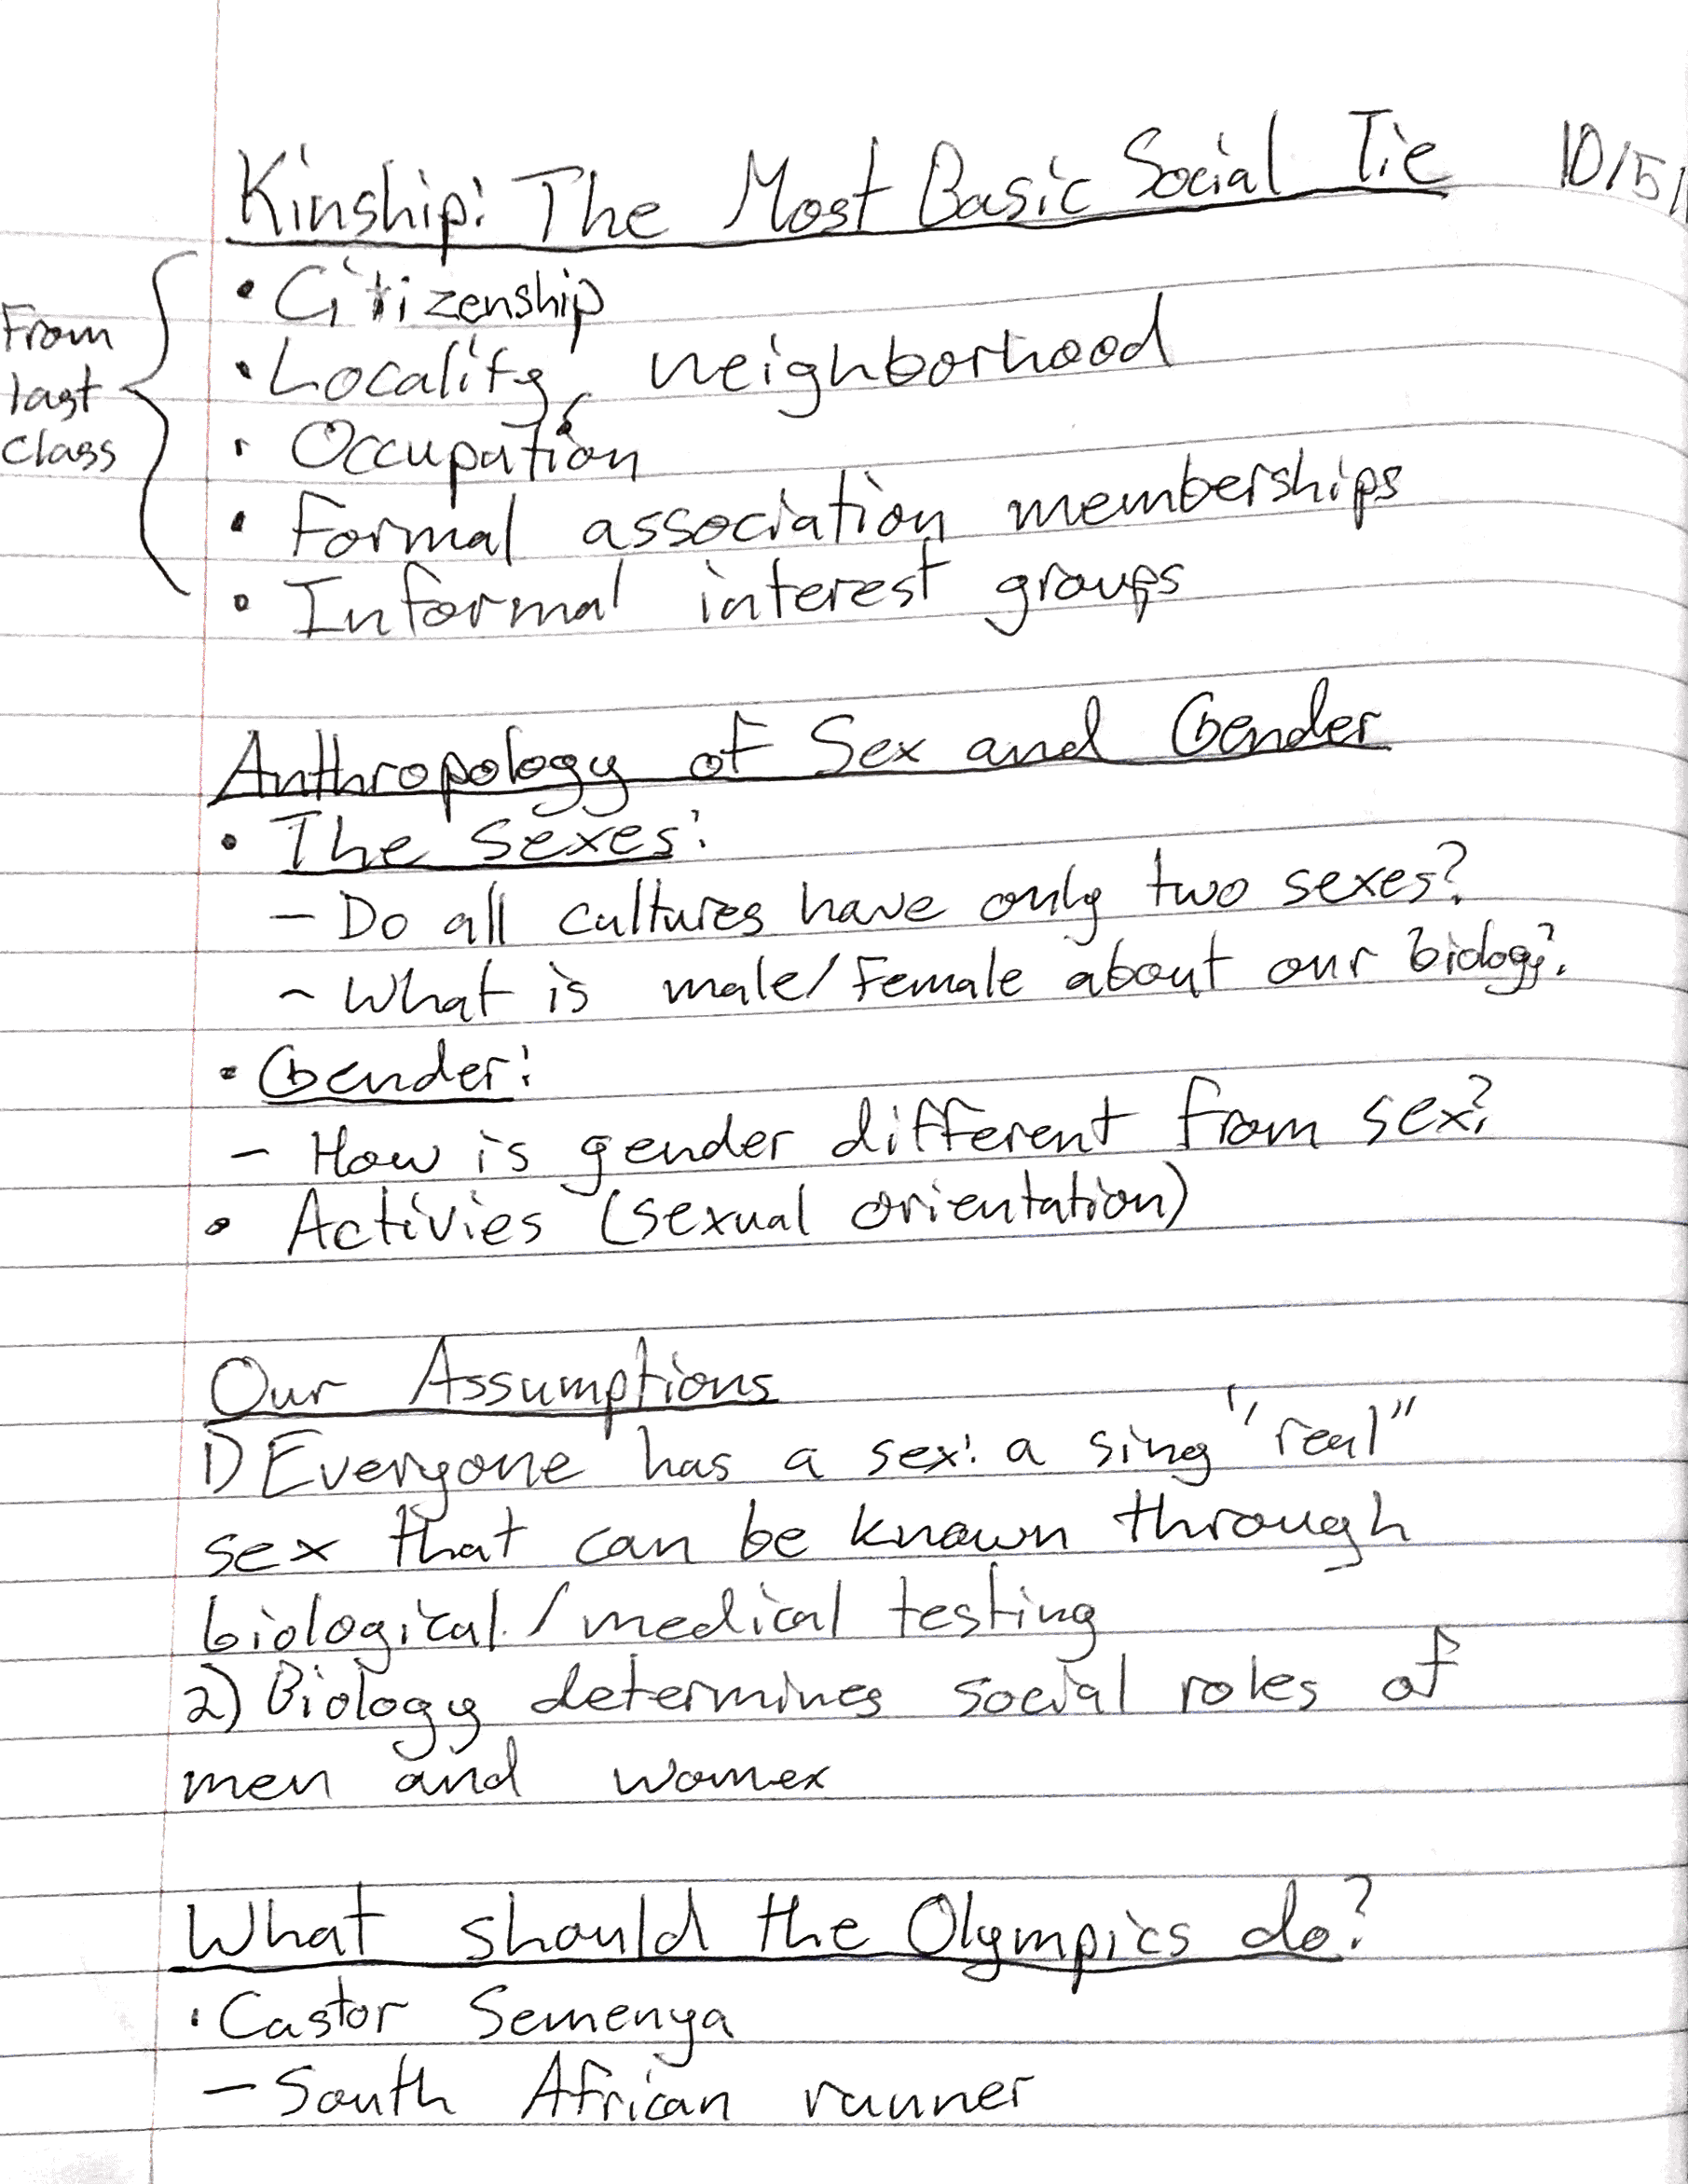 Kinship: The Most Basic Social Tie 10/5/
From
last
class
• Citizenship
• Locality, neighborhood
• Occupation
• Formal association memberships
• Informal interest groups
Anthropology of Sex and Gender
• The sexes:
- Do all cultures have only two sexes?
- What is male/female about our biology?
• Gender:
- How is gender different from sex?
• Activies (sexual orientation)
Our Assumptions
1) Everyone has a sex: a sing "real"
sex that can be known through
biological/medical testing
2) Biology determines social roles of
men and women
What should the Olympics do?
• Castor Semenya
- South African runner